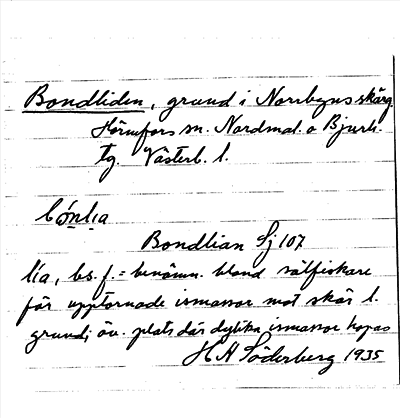 Bondliden, grund i Norrbyns skärg.
Hörnefors sn. Nordmal. o Bjurh.
tg. Västerb. l.
bónlıa
Bondlian Sj 107
lía, bs. f. = benämn. bland sälfiskare
för upptornade ismassor mot skär l.
grund; äv. plats där dylika ismassor hopas
H A Söderberg 1935